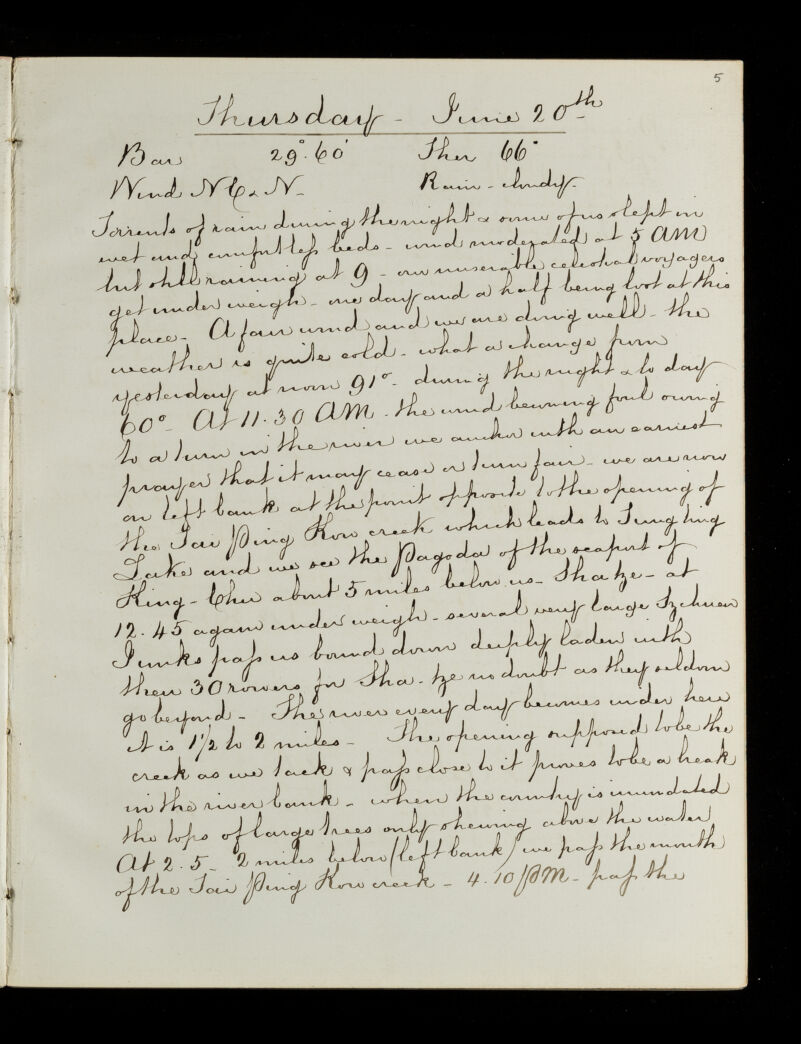 5
Thursday - June 20th
Bar 29°.60' Ther 66°
Wind N E & N - Rain - cloudy -
Torrents of rain during the night & some of us slept in
wet and comfortless beds - wind moderated at 5 AM
but still raining at 9 - our miserable celestial voyagers
get under weigh - one day and a half being lost at this
place - A fair wind and we are doing well - the
weather is quite cold - what a change from
yesterday at noon 91° - during the night & to day
60° - At 11.30 AM - the wind becoming foul owing
to a turn in the river we anchor with an earnest
prayer that it may cease or turn fair - we are now
on left bank at the point opposite to the opening of
the Tai Ping Kow creek which leads to Tung ting
Lake and we see the Pagoda of the seaport of
King - Chu about 5 miles below us - Sha tze - at
12.45 again under weigh - several very large Szchuen
Junks pass us bound down deeply laden with
their 30 rowers for Sha - tze no doubt as they seldom
go beyond - The river every day becomes wider here
it is 1 1/2 to 2 miles - The opening supposed to be the
creek as we tack & pass close to it proves to be a break
in the river bank - when the country is inundated
the tops of large trees only shewing above the water
At 2.5 - 2 miles below (left bank) we pass the mouth
of the Tai Ping Kow creek - 4.10 PM - pass the